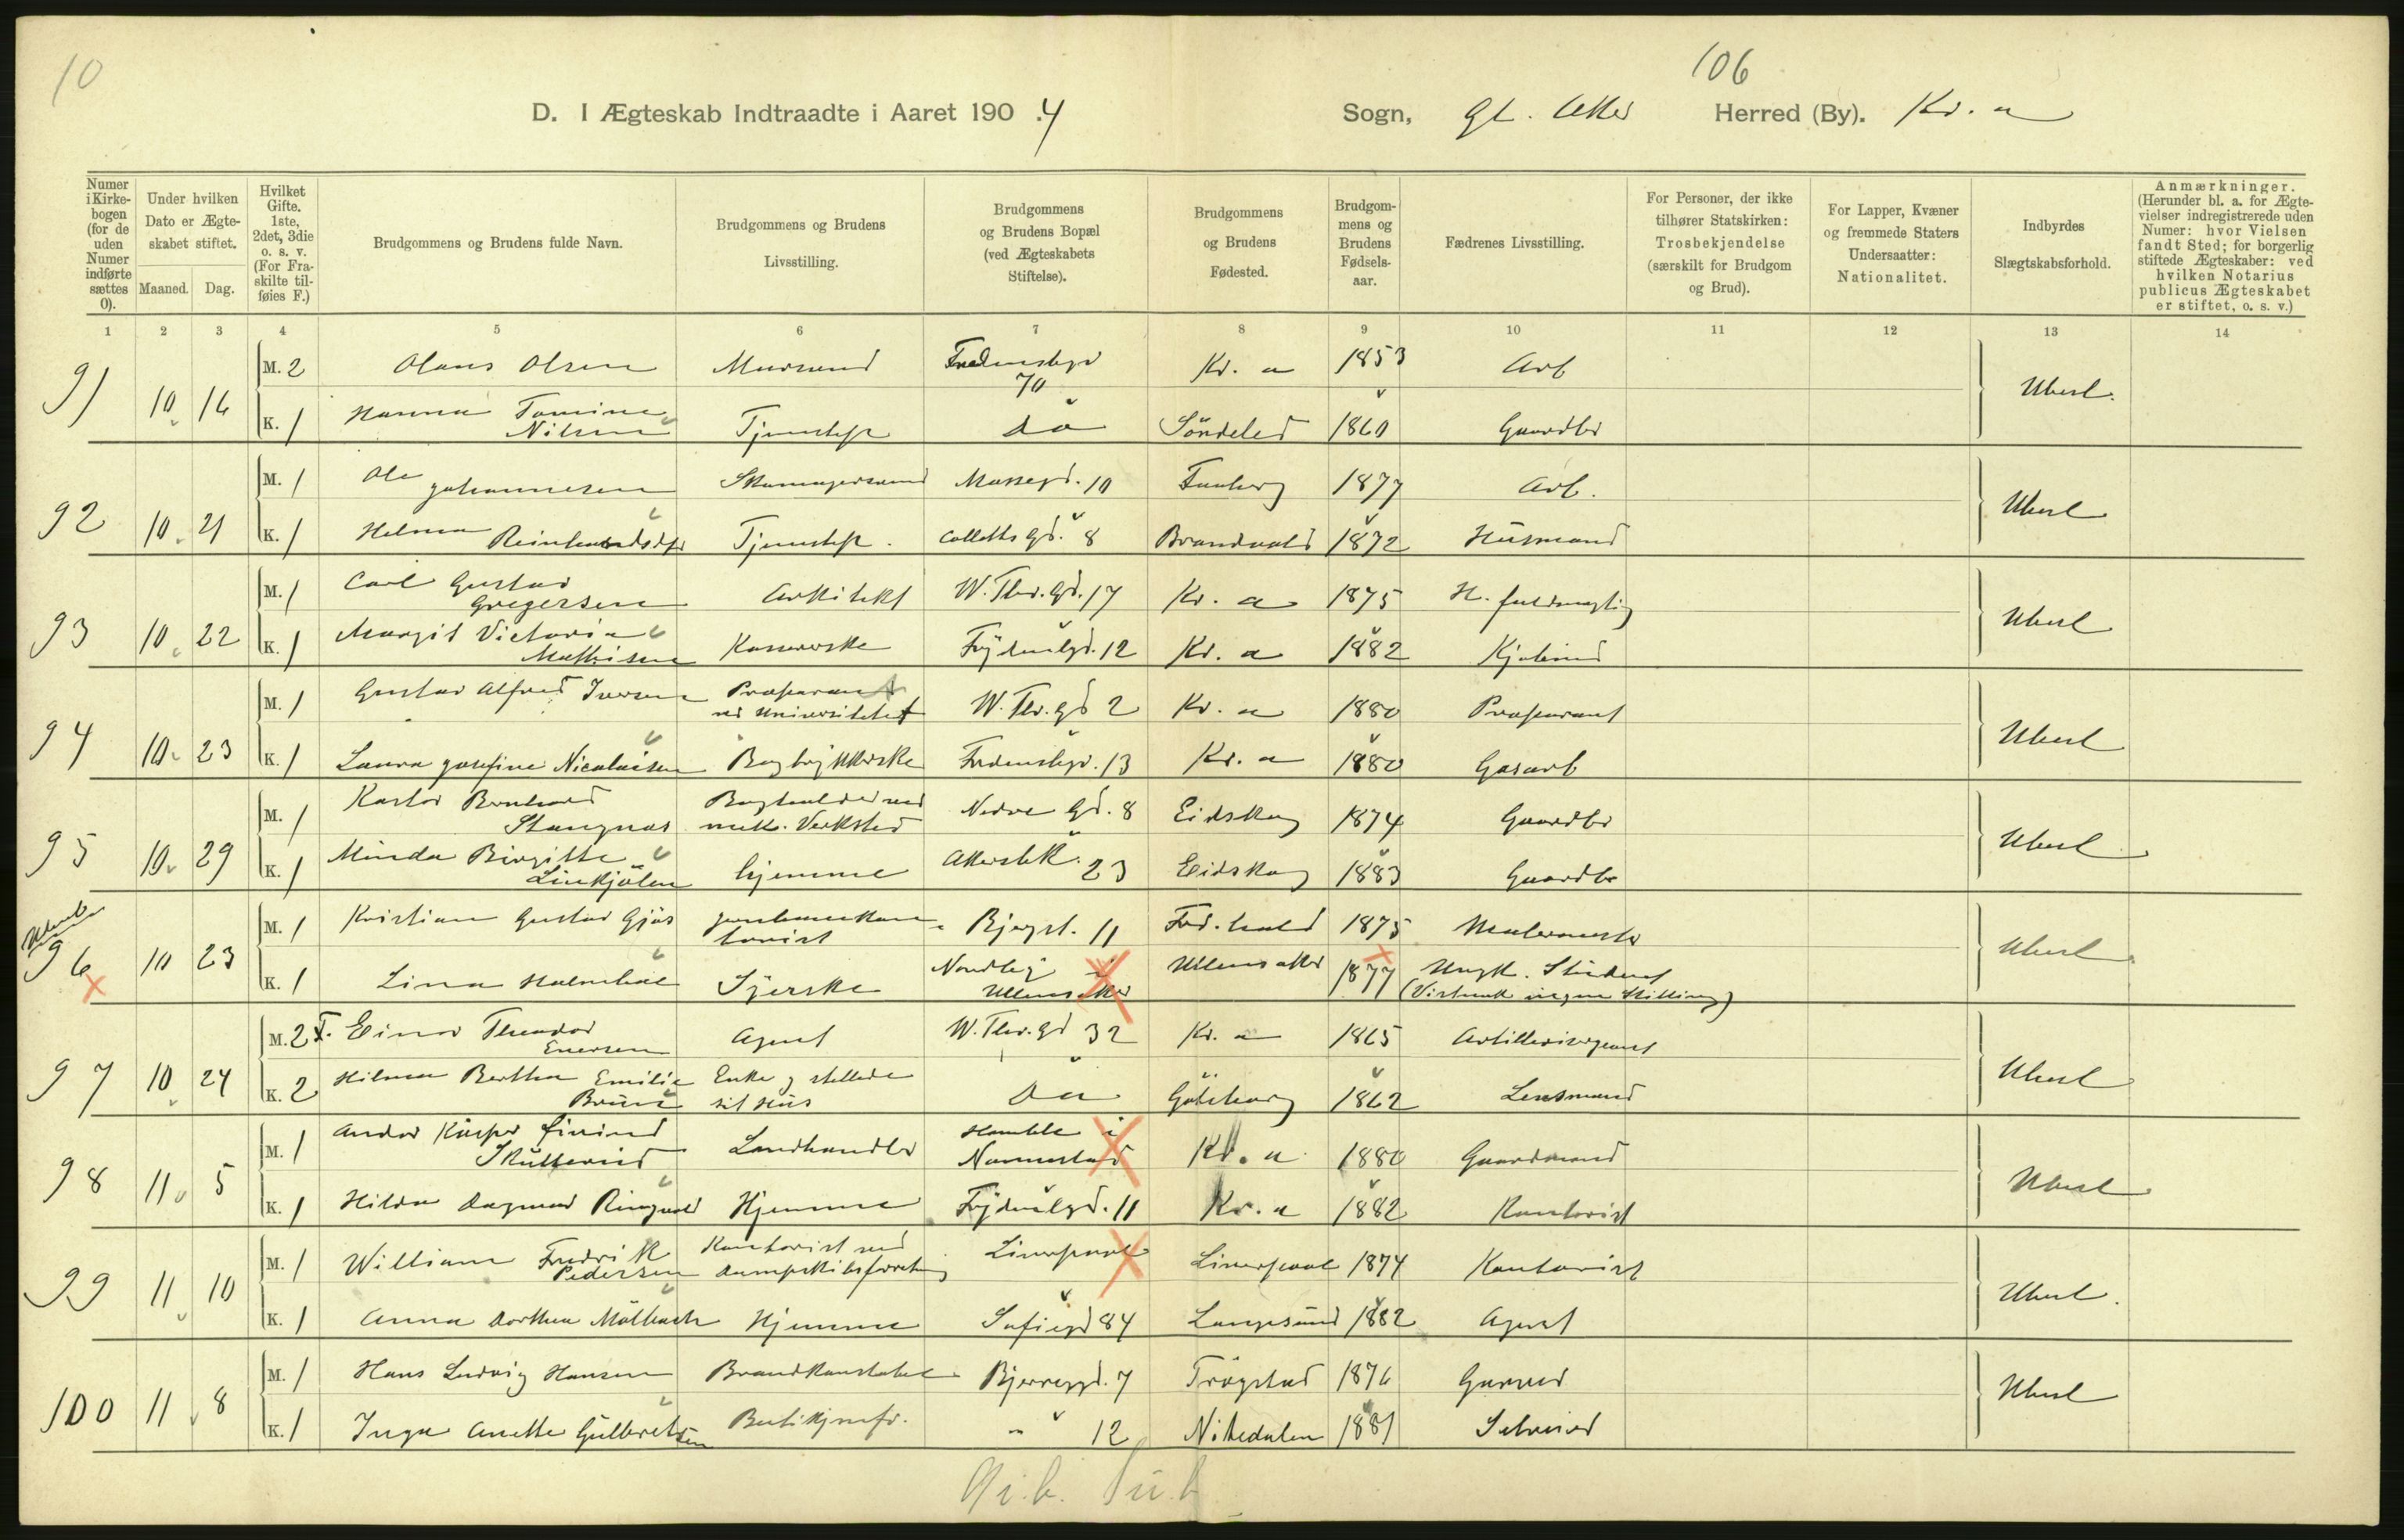 10
106
D. I Ægteskab Indtraadte i Aaret 190 .4 Sogn, Gl. Aker Herred (By). Kr. a
Numer i Kirkebogen (for de uden Numer indførte sættes 0).
Under hvilken Dato er Ægteskabet stiftet.
Maaned. Dag.
Hvilket Gifte. 1ste, 2det, 3die o. s. v. (For Fraskilte tilføies F.)
Brudgommens og Brudens fulde Navn.
Brudgommens og Brudens Livsstilling.
Brudgommens og Brudens Bopæl (ved Ægteskabets Stiftelse).
Brudgommens og Brudens Fødested.
Brudgommens og Brudens Fødselsaar.
Fædrenes Livsstilling.
For Personer, der ikke tilhører Statskirken: Trosbekjendelse (særskilt for Brudgom og Brud).
For Lapper, Kvæner og fremmede Staters Undersaatter: Nationalitet.
Indbyrdes Slægtskabsforhold.
Anmærkninger. (Herunder bl. a. for Ægtevielser indregistrerede uden Numer: hvor Vielsen fandt Sted; for borgerlig stiftede Ægteskaber: ved hvilken Notarius publicus Ægteskabet er stiftet, o. s. v.)
1 2 3 4 5 6 7 8 9 10 11 12 13 14
91 10 16 M. 2 Olaus Olsen Murmand 70 Kr. a 1853 Arb Ubesl.
K. 1 Hanna Tomine Nilsen Tjenstep do Søndeled 1860 Gaardbr
92 10 21 M. 1 Ole Johannesen Mossegd. 10 Faaberg 1877 Arb. Ubesl
K. 1 Helma Reinhardsdtr Tjenstep. Colletts Gd. 8 Brandvold 1872 Husmand
93 10 22 M. 1 Carl Gustav Gregersen Arkitekt W. Thr. Gd. 17 Kr. a 1875 H. fuldmægtig Ubesl
K. 1 Margit Victoria Mathisen Kassererske Frydenlgd. 12 Kr. a 1882 Kjøbmd
94 10 23 M. 1 Gustav Alfred Iversen Præparant ved Universitetet W. Thr. Gd 2 Kr. a 1880 Præparant Ubesl
K. 1 Laura Josefine Nicolaisen Bogtrykkerske Fredensbgv. 13 Kr. a 1880 Gasarb
95 10 29 M. 1 Karlor Bernhard Stangnæs Bogholder ved mek. Verksted Nedre Gd. 8 Eidskog 1874 Gaardbr Ubesl
K. 1 Minda Birgitte Linkjølen hjemme Akersbk. 23 Eidskog 1883 Gaardbr
96 10 23 M. 1 Kristian Gustav Gjøs Bjergst. 11 Fred.hald 1875 Malermester Ubesl
K. 1 Lina Holmboe Syerske Nordby i Ullensaker Ullensaker 1877 Ungk. Student (Virksomh ingen Stilling)
97 10 24 M. 2 F. Einar Theodor Enersen Agent W. Thr. Gd 32 Kr. a 1865 Artillerisergeant Ubesl
K. 2 Hilma Bertha Emilie Bruun Enke og stellede sit Hus Do Gøteborg 1862 Lensmand
98 11 5 M. 1 Andor Kasper Eivind Skutterud Landhandler i Nannestad Kr. a 1880 Gaardmand Ubesl
K. 1 Hilda Dagmar Ringvold Hjemme Frydenlgd. 11 Kr. a 1882 Kontorist
99 11 10 M. 1 William Fredrik Pedersen Kontorist ved Dampskibsforretn Liverpool Liverpool 1874 Kontorist Ubesl.
K. 1 Anna Dorthea Møllbach Hjemme Sofiegd 84 Langesund 1882 Agent
100 11 8 M. 1 Hans Ludvig Hansen Brandkonstabel Bjerregd. 7 Trøgstad 1876 Garver Ubesl
K. 1 Inga Anette Gulbretsen Butikjomfr. " 12 Nitedalen 1881 Selveier